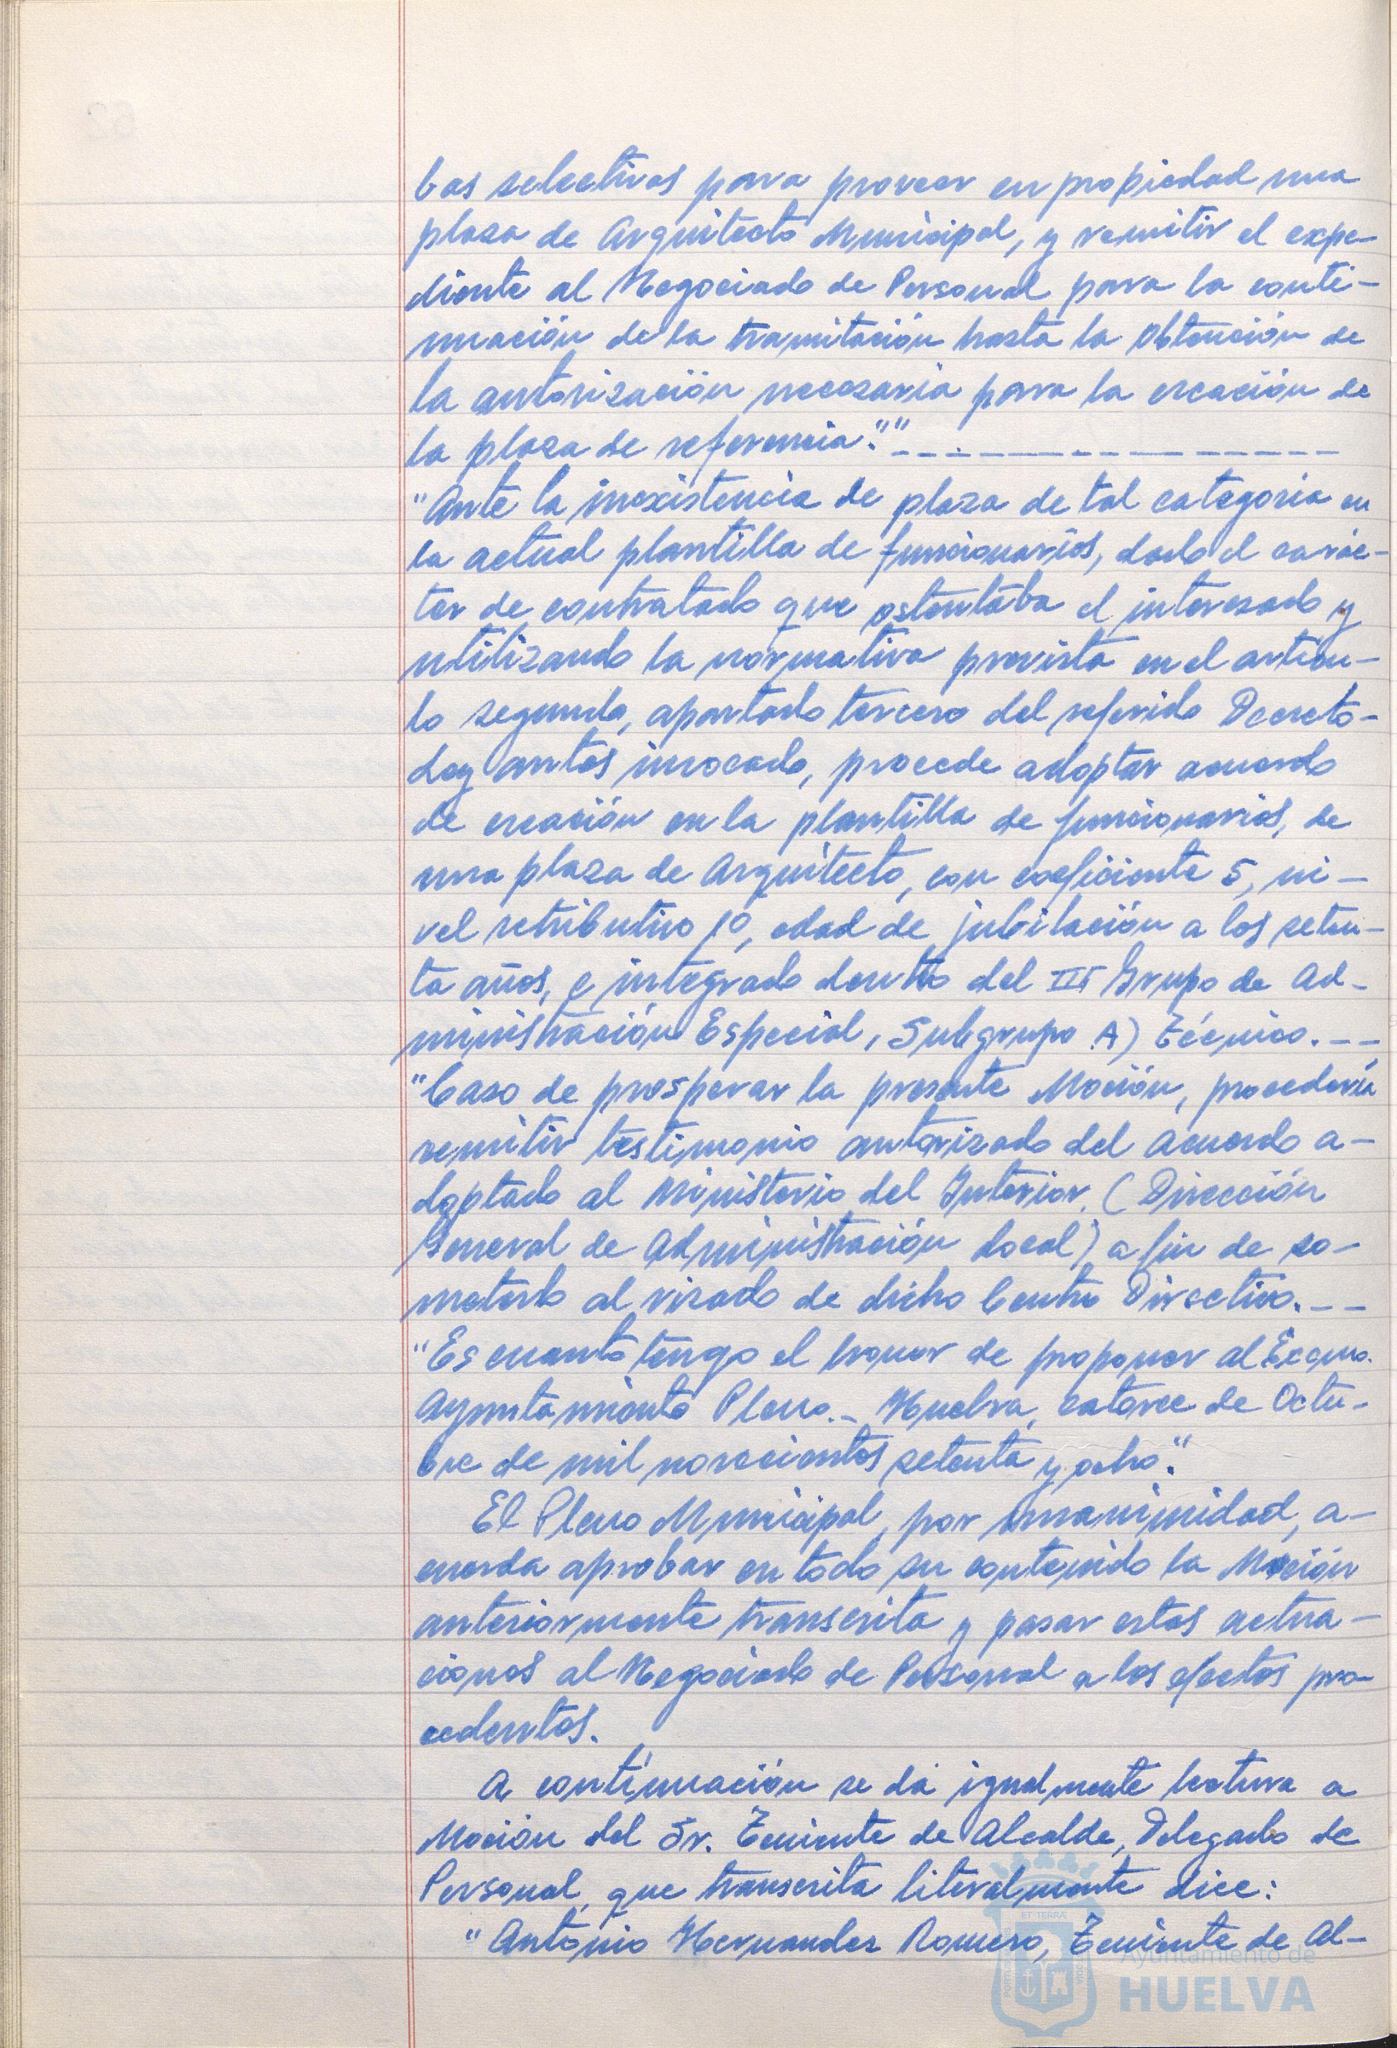 bas selectivas para proveer en propiedad una
plaza de Arquitecto Municipal, y remitir el expe-
diente al Negociado de Personal para la conti-
nuación de la tramitación hasta la obtención de
la autorización necesaria para la creación de
la plaza de referencia."" - - - - - - - - - - - - - - -
"Ante la inexistencia de plaza de tal categoria en
la actual plantilla de funcionarios, dado el carác-
ter de contratado que ostentaba el interesado y
utilizando la normativa prevista en el artícu-
lo segundo, apartado tercero del referido Decreto-
Ley antes invocado, procede adoptar acuerdo
de creación en la plantilla de funcionarios, de
una plaza de Arquitecto, con coeficiente 5, ni-
vel retributivo 10, edad de jubilación a los seten-
ta años, e integrado dentro del III Grupo de Ad-
ministración Especial, Subgrupo A) Técnico. - -
"Caso de prosperar la presente Moción, procedería
remitir testimonio autorizado del acuerdo a-
doptado al Ministerio del Interior, (Dirección
General de Administración Local) a fin de so-
meterlo al visado de dicho Centro Directivo. - -
"Es cuanto tengo el honor de proponer al Excmo.
Ayuntamiento Pleno.- Huelva, catorce de Octu-
bre de mil novecientos setenta y ocho."
El Pleno Municipal, por unanimidad, a-
cuerda aprobar en todo su contenido la Moción
anteriormente transcrita y pasar estas actua-
ciones al Negociado de Personal a los efectos pro-
cedentes.
A continuación se da igualmente lectura a
Moción del Sr. Teniente de Alcalde, Delegado de
Personal, que transcrita literalmente dice:
"Antonio Hernandez Romero, Teniente de Al-
Ayuntamiento de
HUELVA